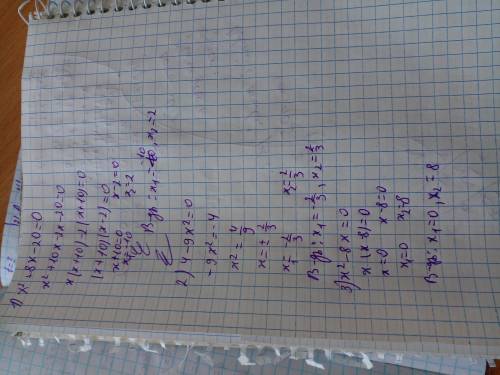 1) x²+8x-20=0
x²+10x-2x-20=0
x(x+10)-2(x+10)=0
(x+10)(x-2)=0
x+10=0 x-2=0
x₁=-10 x₂=2
В-дь: x₁=-10, x₂=2
2) 4-9x²=0
-9x²=-4
x²=4/9
x=±2/3
x₁=-2/3 x₂=2/3
В-дь: x₁=-2/3, x₂=2/3
3) x²-8x=0
x·(x-8)=0
x=0 x-8=0
x₁=0 x₂=8
В-дь: x₁=0, x₂=8